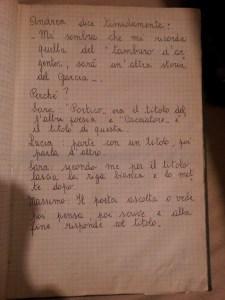 Andrea dice timidamente:
- Mi sembra che mi ricorda
quella del "tamburo d'ar
gento", sarà un'altra storia
del Garcia -.
Perché?
Sara: "Portico" era il titolo del
l'altra poesia e "Cacciatore" è
il titolo di questa.
Lucia: parte con un titolo, poi
parla d'altro.
Sara: secondo me per il titolo
lascia la riga bianca e lo met
te dopo.
Massimo: Il poeta ascolta o vede
poi pensa, poi scrive e alla
fine risponde col titolo.